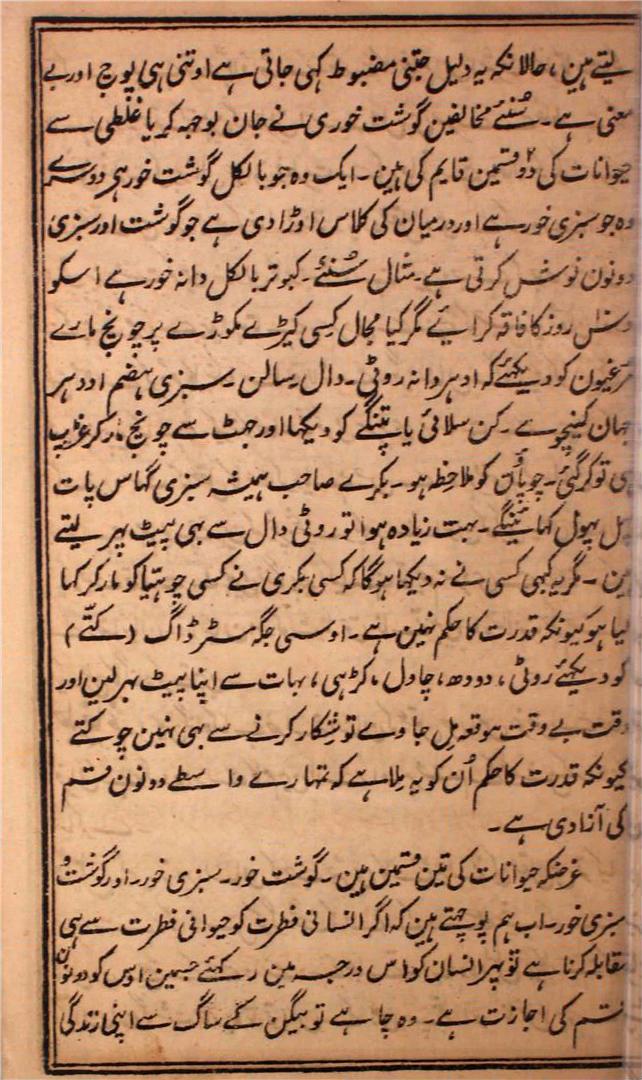 لیتے ہین، حالانکہ یہ دلیل جتنی مضبوط کہی جاتی ہے اوتنی ہی پوچ اور بے
معنی ہے۔ سُنئے مخالفین گوشت خوری نے جان بوجہہ کر یا غلطی سے
حیوانات کی دو قسمین قایم کی ہین۔ ایک وہ جو بالکل گوشت خور ہی دوسرے
وہ جو سبزی خور ہے اور درمیان کی کلاس اوڑا دی ہے جو گوشت اور سبزی
دونون نوش کرتی ہے۔ مثال سُنئے۔ کبوتر بالکل دانہ خور ہے اسکو
دس روز کا فاقہ کرائیے مگر کیا مجال کِسی کیڑے مکوڑے پر چونچ مارے
مرغیون کو دیکہئے کہ اوہر دانہ روٹی۔ دال سالن۔ سبزی ہضم اودہر
جہان کینچوے۔ کن سلائی یا پتنگے کو دیکہا اور جہٹ سے چونچ مار کر غڑپ
ہی تو کر گئی۔ چوپاُن کو ملاحظہ ہو۔ بکرے صاحب ہمیشہ سبزی گہاس پات
پہل پہول کہاینگے۔ بہت زیادہ ہوا تو روٹی دال سے بہی پیٹ بہر لیتے
ہین۔ مگر یہ کبہی کسی نے نہ دیکہا ہوگا کہ کسی بکری نے کسی چوہیا کو مار کر کہا
لیا ہو کیونکہ قدرت کا حکم نہین ہے۔ اوسی جگہ مسٹر ڈاگ (کتّے)
کو دیکہئے روٹی، دودھ، چاول، کڑہی، بہات سے اپنا پیٹ بہر لین اور
وقت بے وقت موقعہ مِل جاوے تو شِکار کرنے سے بہی نہین چوکتے
کیونکہ قدرت کا حکم اُن کو یہ مِلا ہے کہ تمہارے واسطے دونون قسم
کی آزادی ہے۔
غرضکہ حیوانات کی تین قسمین ہین۔ گوشت خور۔ سبزی خور۔ اور گوشت و
سبزی خور۔ اب ہم پوچہتے ہین کہ اگر انسانی فطرت کو حیوانی فطرت سے ہی
مقابلہ کرنا ہے تو پہر انسان کو اس درجہ مین رکہئے جسمین اوس کو دونون
قسم کی اجازت ہے۔ وہ چاہے تو بیگن کے ساگ سے اپنی زندگی